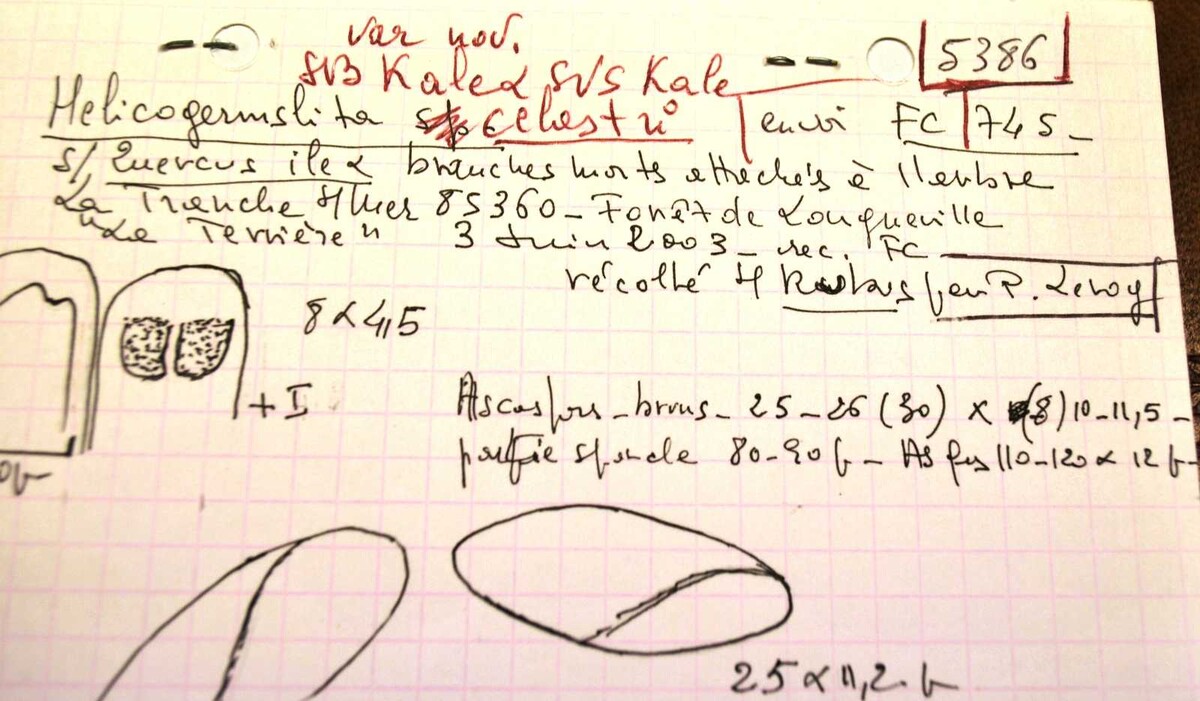 var nov.
SVB Kale α SVS Kale
5386
Helicogermslita celastri envoi FC 745 -
s/ Quercus ilex branches morts attachés à l'arbre
La Tranche s/Mer 85360 - Forêt de Longueville
"La Terrière" 3 Juin 2003 - rec. FC
récolté s/ Rubus par P. Leroy
8 x 4,5
+ I
Ascospores - bruns - 25 - 26 (30) x (8) 10 - 11,5 -
partie sporale 80-90 µ - As 110-120 x 12 µ -
25 x 11,2 µ